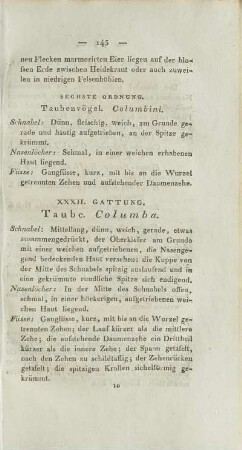 — 145 —
nen Flecken marmorirten Eier liegen auf der blo-
ßen Erde zwischen Heidekraut oder auch zuwei-
len in niedrigen Felsenhöhlen.
SECHSTE ORDNUNG.
Taubenvögel. Columbini.
Schnabel: Dünn, fleischig, weich, am Grunde ge-
rade und häutig aufgetrieben, an der Spitze ge-
krümmt.
Nasenlöcher: Schmal, in einer weichen erhabenen
Haut liegend.
Füsse: Gangfüsse, kurz, mit bis an die Wurzel
getrennten Zehen und aufstehender Daumenzehe.
XXXII. GATTUNG.
Taube. Columba.
Schnabel: Mittellang, dünn, weich, gerade, etwas
zusammengedrückt, der Oberkiefer am Grunde
mit einer weichen aufgetriebenen, die Nasengе-
gend bedeckenden Haut versehen; die Kuppe von
der Mitte des Schnabels spitzig auslaufend und in
eine gekrümmte rundliche Spitze sich endigend.
Nasenlöcher: In der Mitte des Schnabels offen,
schmal, in einer höckerigen, aufgetriebenen wei-
chen Haut liegend.
Füsse: Gangfüsse, kurz, mit bis an die Wurzel ge-
trennten Zehen; der Lauf kürzer als die mittlere
Zehe; die aufstehende Daumenzehe ein Drittheil
kürzer als die innere Zehe; der Spann getäfelt,
nach den Zehen zu schildtäflig; der Zehenrücken
getäfelt; die spitzigen Krallen sichelförmig ge-
krümmt.
10